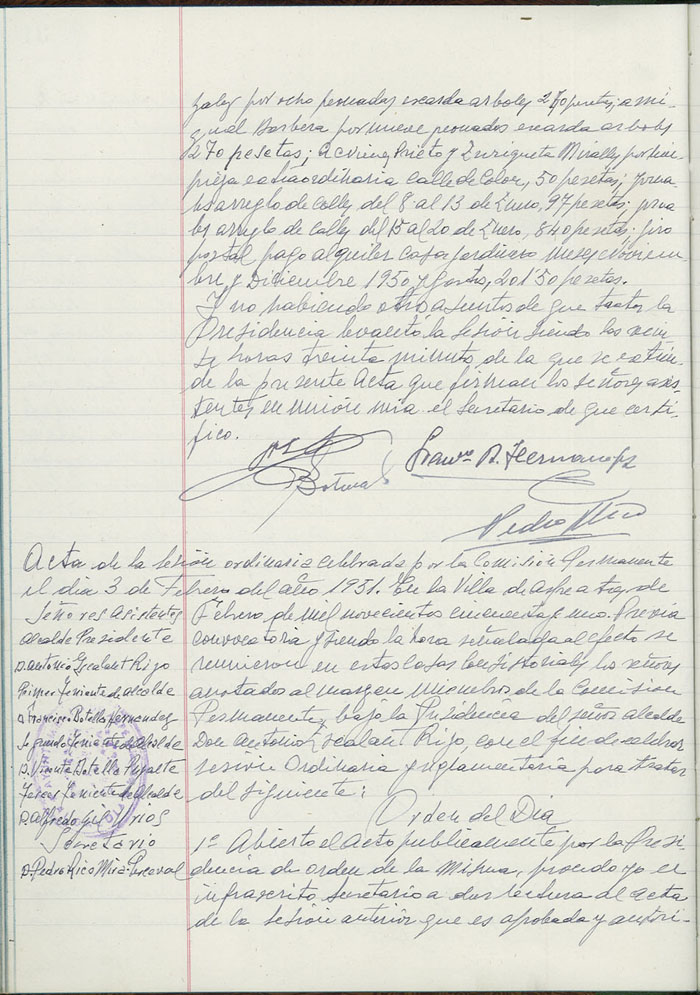 por ocho pesadas escarda arboles 270 pesetas; a Mi-
guel Barbera por nueve pesadas escarda arboles
270 pesetas; a Prieto y Enriqueta Miralles por lim-
pieza extraordinaria calle de Colon, 50 pesetas;
arreglo de calles del 8 al 13 de Enero, 97 pesetas;
arreglo de calles del 15 al 20 de Enero, 840 pesetas; giro
postal pago alquiler casa meses Noviem-
bre y Diciembre 1950 y Gastos, 201'50 pesetas.
Y no habiendo otros asuntos de que tratar la
Presidencia levantó la sesión siendo las vein-
te horas treinta minutos de la que se extien-
de la presente Acta que firman los señores asis-
tentes en unión mia el Secretario de que certi-
fico.
Botella
Franco B. Hernandez
Pedro Rico
Acta de la sesión ordinaria celebrada por la Comisión Permanente
el dia 3 de Febrero del año 1951. En la Villa de Aspe a tres de
Febrero de mil novecientos cincuenta y uno. Previa
convocatoria y siendo la hora señalada al efecto se
reunieron en estas Casas Consistoriales los señores
anotados al margen Miembros de la Comision
Permanente, bajo la Presidencia del señor Alcalde
Don Antonio Escalant Rizo, con el fin de celebrar
sesión Ordinaria y reglamentaria para tratar
del siguiente:
Señores Asistentes
Alcalde Presidente
D. Antonio Escalant Rizo
Primer Teniente de Alcalde
D. Francisco Botella Hernandez
Segundo Teniente de Alcalde
D. Vicente Botella Peralte
Tercer Teniente de Alcalde
D. Alfredo Gil Urios
Secretario
D. Pedro Rico Mira-Perceval
Orden del Dia
1º Abierto el Acto publicamente por la Presi-
dencia de orden de la Misma, procedo yo el
infrascrito Secretario a dar lectura al acta
de la sesión anterior que es aprobada y autori-